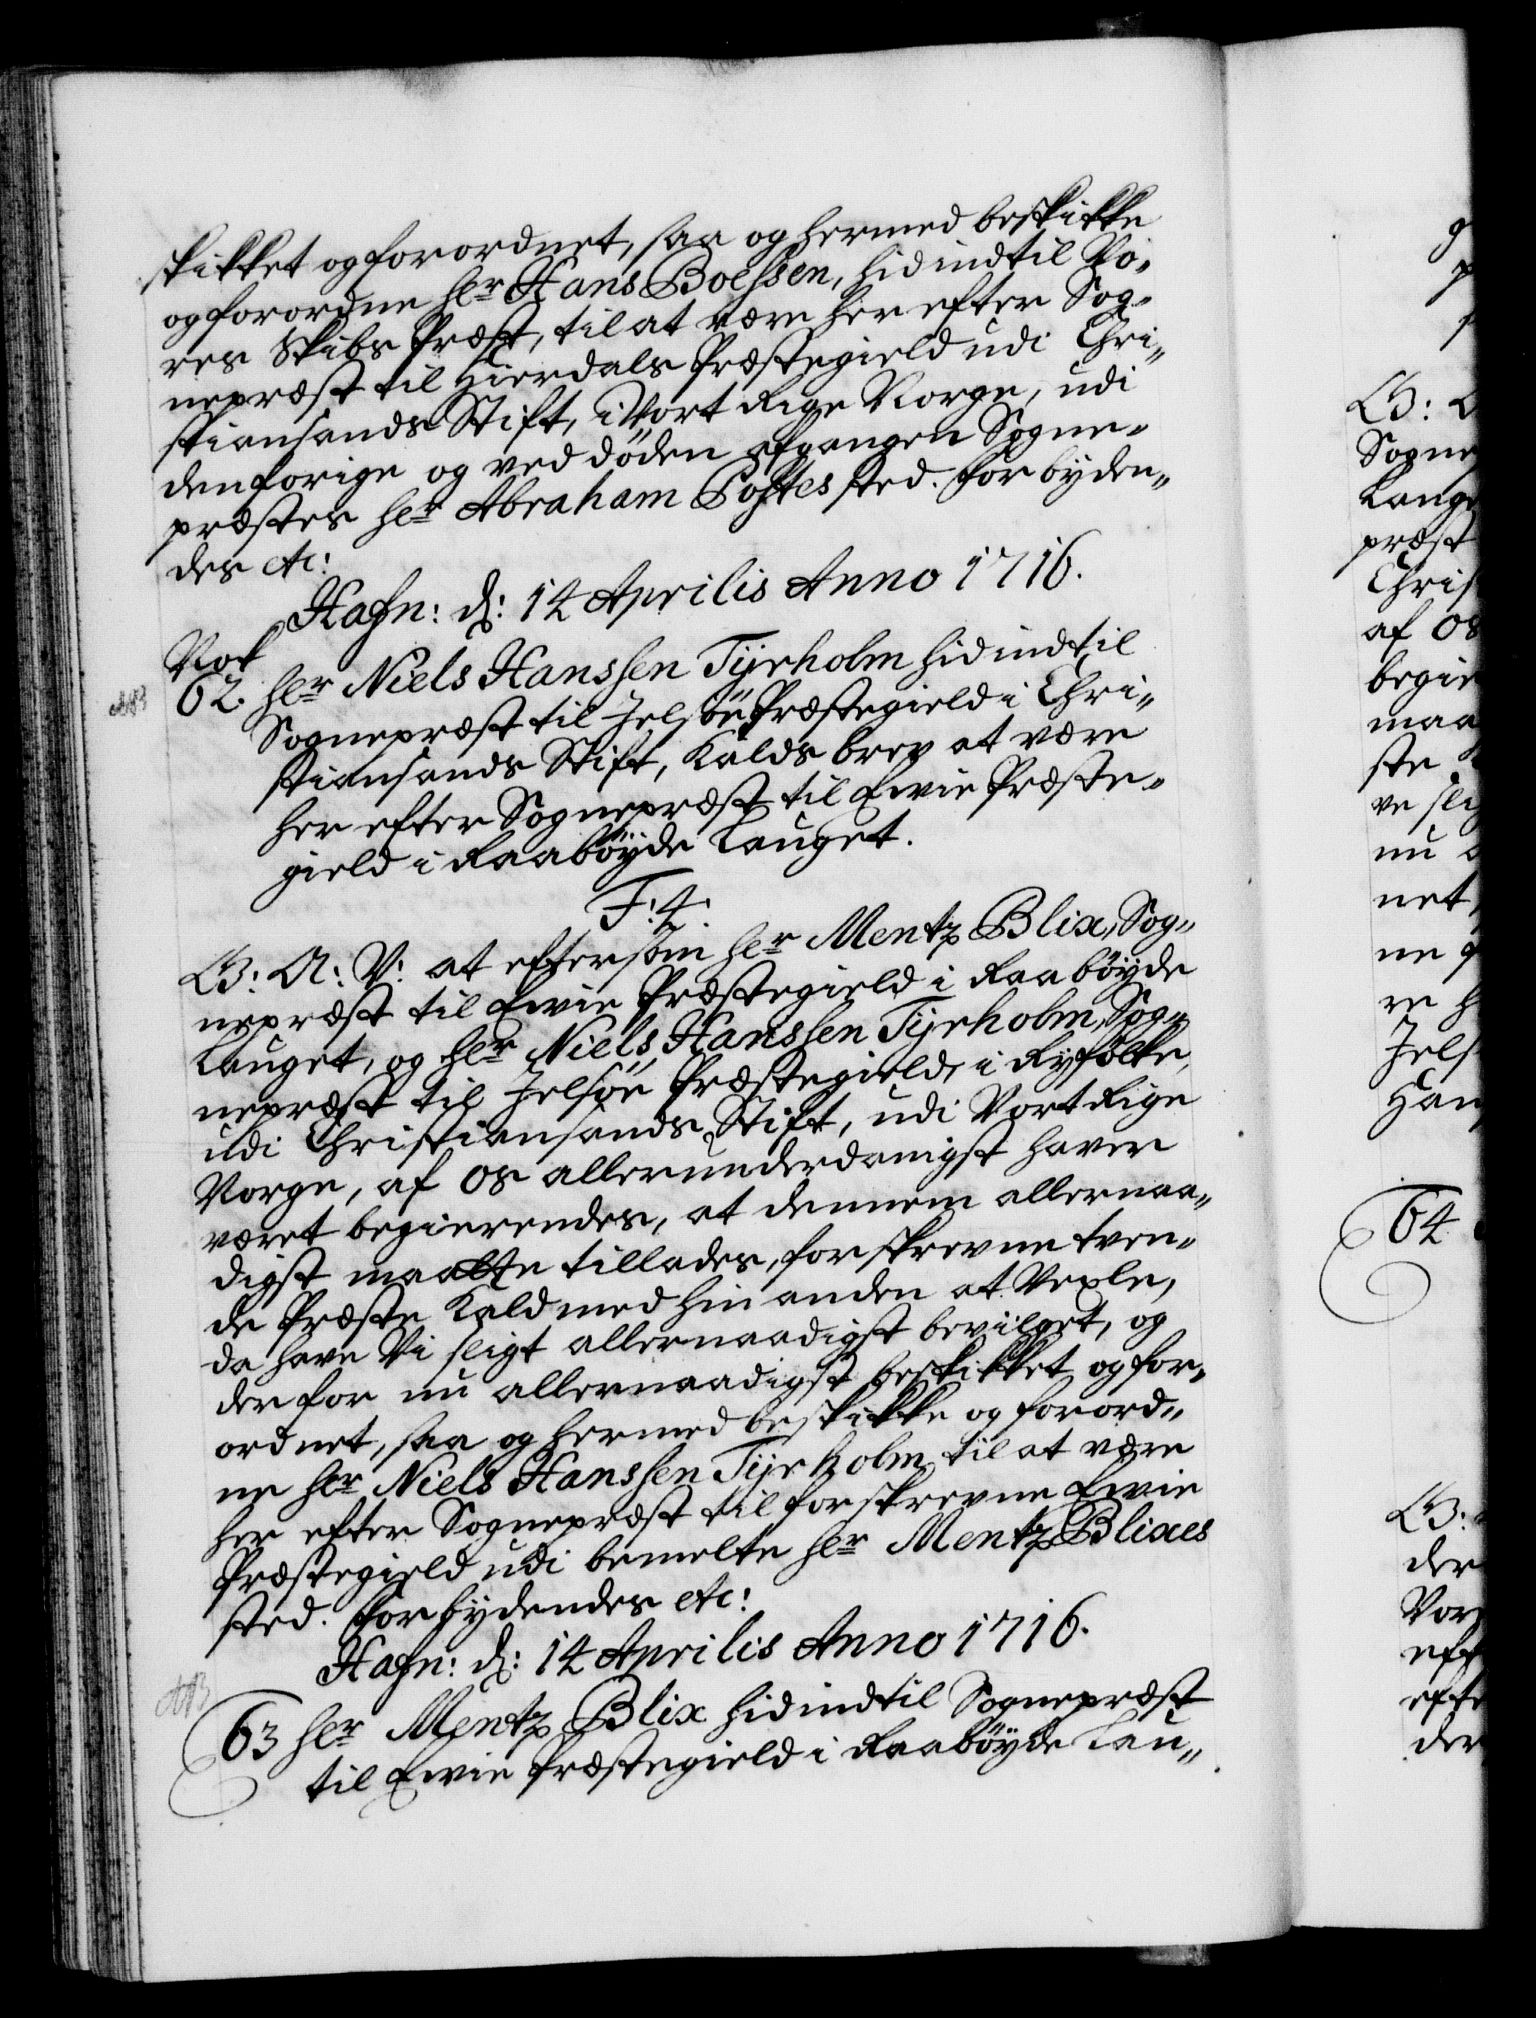 skikket og forordnet, saa og hermed beskikke
og forordne hr Hans Boessen, hid indtil Vo„
res Skibs Præst, til at være her efter Sog„
nepræst til Hierdals Præstegield udi Chri„
stiansands Stift, i Vort Rige Norge, udi
den forige og ved døden afgangen Sogne„
præstes hr Abraham Postes sted. forbyden„
des etc:
Hafn: d: 14 Aprilis Anno 1716.
Not
62. hr Niels Hanssen Tyrholm hid indtil
Sognepræst til Jelsöe Præstegield i Chri„
stiansands Stift, Kalds brev at være
her efter Sognepræst til Evie Præste„
gield i Raabøyde Lauget.
F: 4.
G: A: V: at eftersom hr Mentz Blix, Sog„
nepræst til Evie Præstegield i Raabøyde
Lauget, og hr Niels Hanssen Tyrholm, Sog„
nepræst til Jelsöe Præstegield, i Ryfölke,
udi Christiansands Stift, udi Vort Rige
Norge, af os allerunderdanigst haver
været begierendes, at dennem allernaa„
digst maatte tillades, forskrevne tven„
de Præste Kald med hin anden at Vexle,
da have Vi sligt allernaadigst bevilget, og
derfor nu allernaadigst beskikket og for„
ordnet, saa og hermed beskikke og forord„
ne hr Niels Hanssen Tyrholm til at være
her efter Sognepræst til forskrevne Evie
Præstegield udi bemelte hr Mentz Blixes
sted. forbydendes etc:
Hafn: d: 14 Aprilis Anno 1716.
63 hr Mentz Blix hid indtil Sognepræst
til Evie Præstegield i Raabøyde Lau„
G:
Sogne
Lange
præst
Chris
af os
begie
maa
ste
ve sli
nu
net,
ne
re
Jels
Han
64
G:
der
Vor
eff
efte
der